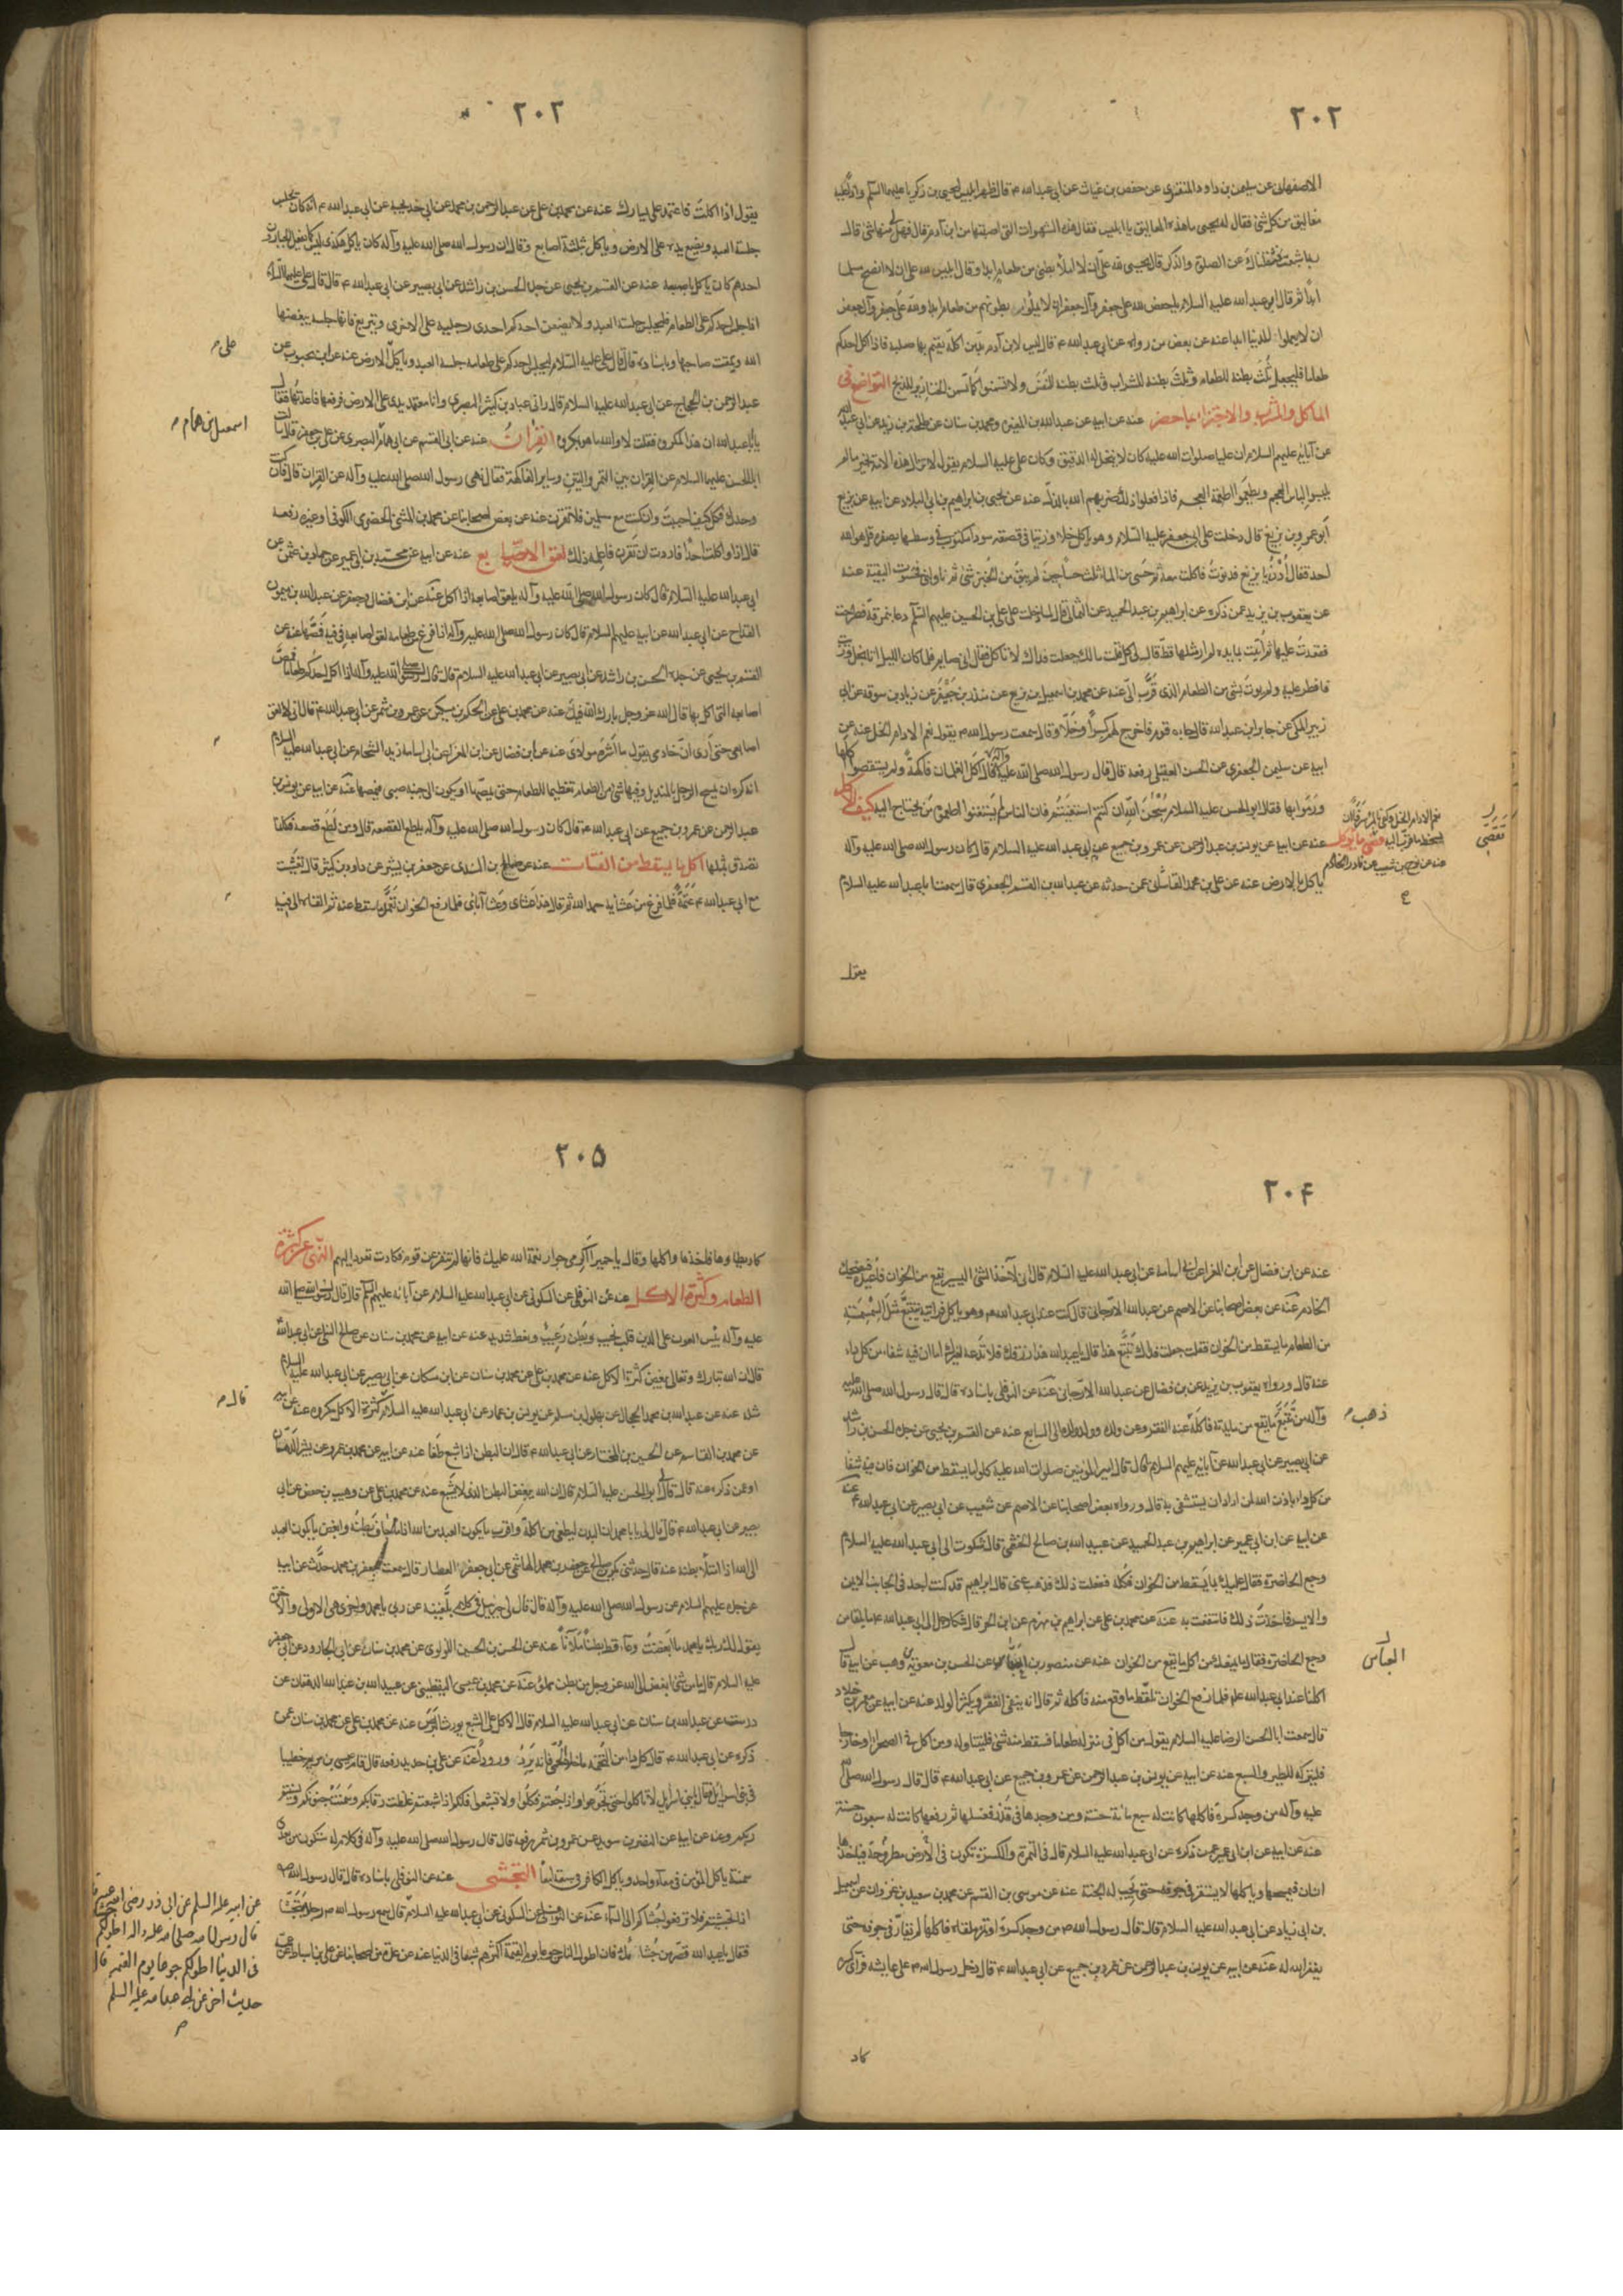 ٢٠٢
الاصفهانى عن سليمن بن داود المنقرى عن حفص بن غياث عن ابى عبد الله ع قال ظهر ابليس ليحيى بن زكريا عليهما السلم واذا عليه
معاليق من كل شئ فقال له يحيى ما هذه المعاليق يا ابليس فقال هذه الشهوات التى اصبتها من ابن آدم قال فهل لى منها شئ قال
ربما شبعت فثقلناك عن الصلوة والذكر قال يحيى لله على ان لا املأ بطنى من طعام ابدا وقال ابليس لله على ان لا انصح مسلما
ابدا ثم قال ابو عبد الله عليه السلام يا حفص لله على جعفر وآل جعفر ان لا يملؤا بطونهم من طعام ابدا ولله على جعفر وآل جعفر
ان لا يعملوا للدنيا ابدا عنه عن بعض من رواه عن ابى عبد الله ع قال ليس لابن آدم بد من اكلة يقيم بها صلبه فاذا اكل احدكم
طعاما فليجعل ثلث بطنه للطعام وثلث بطنه للشراب وثلث بطنه للنفس ولا تسمنوا كما تسمن الخنازير للذبح التواضع فى
الماكل والمشرب والاجتزاء بما حضر عنه عن ابيه عن عبد الله بن المغيرة ومحمد بن سنان عن طلحة بن زيد عن ابى عبد الله
عن آبائه عليهم السلام ان عليا صلوات الله عليه كان لا ينخل له الدقيق وكان على عليه السلام يقول لا تزال هذه الامة بخير ما لم
يلبسوا لباس العجم ويطعموا اطعمة العجم فاذا فعلوا ذلك ضربهم الله بالذل عنه عن يحيى بن ابراهيم بن ابى البلاد عن ابيه عن بزيع
ابو عمر وبن بزيع قال دخلت على ابى جعفر عليه السلام وهو ياكل خلا وزيتا فى قصعة سودا مكتوب فى وسطها بصفرة قل هو الله
احد فقال ادن يا بزيع فدنوت فاكلت معه ثم حسى من الماء ثلث حسيات حين لم يبق من الخبز شئ ثم ناولنى فحسوت البقية عنه
عن يعقوب بن يزيد عمن ذكره عن ابراهيم بن عبد الحميد عن الثمالى قال لما دخلت على على بن الحسين عليهم السلم دعا بنمرقة فطرحت
فقعدت عليها ثم اتيت بمايدة لم ار مثلها قط قال لى كل فقلت مالك جعلت فداك لا تاكل فقال انى صايم فلما كان الليل اتى بخل وزيت
فافطر عليه ولم يوت بشئ من الطعام الذى قرب الى عنه عن محمد بن اسمعيل بن بزيع عن منذر بن جيفر عن زياد بن سوقة عن ابى
زبير المكى عن جابر ابن عبد الله قال جاءه قوم فاخرج لهم كسرا وخلا وقال سمعت رسول الله ص يقول نعم الادام الخل عنه عن
ابيه عن سليمن الجعفرى عن الحسن العقيلى رفعه قال قال رسول الله صلى الله عليه وآله
وآله كلها
ورموا بها فقال ابو الحسن عليه السلام سبحان الله ان كنتم استغنيتم فان الناس لم يستغنوا اطعموه من يحتاج اليه كيف الاكل
عنه عن ابيه عن يونس بن عبد الرحمن عن عمرو بن جميع عن ابى عبد الله عليه السلام قال كان رسول الله صلى الله عليه وآله
ياكل بالارض عنه عن على بن محمد القاسانى عمن حدثه عن عبد الله بن القسم الجعفرى قال سمعت ابا عبد الله عليه السلام
يقول
نعم الادام الخل وكفى بالمرء سرفا ان
يسخط ما قرب اليه
عنه عن نوح بن شعيب عن نادر الخادم
٢٠٣
يقول اذا اكلت فاعتمد على يسارك عنه عن محمد بن على عن عبد الرحمن بن محمد عن ابى خديجة عن ابى عبد الله ع انه كان يجلس
جلسة العبد ويضع يده على الارض وياكل بثلثة اصابع وقال ان رسول الله صلى الله عليه وآله كان ياكل هكذى ليس كما يفعل الجبارون
احدهم كان ياكل باصبعيه عنه عن القسم بن يحيى عن جده الحسن بن راشد عن ابى بصير عن ابى عبد الله ع قال قال على عليه السلم
اذا جلس احدكم على الطعام فليجلس جلسة العبد ولا يضعن احدكم احدى رجليه على الاخرى ويتربع فانها جلسة يبغضها
الله ويمقت صاحبها وباسناده قال قال على عليه السلام ليجلس احدكم على طعامه جلسة العبد وياكل على الارض عنه عن ابن محبوب عن
عبد الرحمن بن الحجاج عن ابى عبد الله عليه السلام قال رانى عباد بن كثير البصرى وانا معتمد يدى على الارض فرفعها فاعدتها فقال
يا ابا عبد الله ان هذا لمكروه فقلت لا والله ما هو بمكروه القران عنه عن ابى القسم عن ابى همام البصرى عن على بن جعفر قال سالت
ابا الحسن عليها السلام عن القران بين التمر والتين وساير الفاكهة فقال نهى رسول الله صلى الله عليه وآله عن القران قال فان كنت
وحدك فكل كيف احببت وان كنت مع مسلمين فلا تقرن عنه عن بعض اصحابنا عن محمد بن المثنى الحضرمى الكوفى او غيره رفعه
قال اذا واكلت احدا فاردت ان تقرن فاعلمه ذلك لعق الاصابع عنه عن ابيه عن محمد بن ابى عمير عن حماد بن عثمن عن
ابى عبد الله عليه السلام قال كان رسول الله صلى الله عليه وآله يلعق اصابعه اذا اكل عنه عن ابن فضال وجعفر عن عبد الله بن ميمون
القداح عن ابى عبد الله عن ابيه عليهم السلام قال كان رسول الله صلى الله عليه وآله اذا فرغ من طعامه لعق اصابعه فى فيه فمصها عنه عن
القسم بن يحيى عن جده الحسن بن راشد عن ابى بصير عن ابى عبد الله عليه السلام قال قال رسول الله صلى الله عليه وآله اذا اكل احدكم طعاما فمص
اصابعه التى اكل بها قال الله عز وجل بارك الله فيك عنه عن محمد بن على عن الحكم بن مسكين عن عمرو بن شمر عن ابى عبد الله ع قال انى لالعق
اصابعى حتى ارى ان خادمى يقول ما اشره مولاى عنه عن ابن فضال عن ابن العزا عن ابى اسامة زيد الشحام عن ابى عبد الله عليه السلام
انه كره ان يمسح الرجل بالمنديل وفيها شئ من الطعام تعظيما للطعام حتى يمصها او يكون الى جنبه صبى فيمصها عنه عن ابيه عن يونس بن
عبد الرحمن عن عمرو بن جميع عن ابى عبد الله ع قال كان رسول الله صلى الله عليه وآله يلطع القصعة قال ومن لطع قصعة فكانما
تصدق بمثلها اكل ما يسقط من الفتات عنه عن صالح بن السندى عن جعفر بن بشير عن داود بن كثير قال تعشيت
مع ابى عبد الله ع عتمة فلما فرغ من عشايه حمد الله ثم قال هذا عشاى وعشا آبائى فلما رفع الخوان تقمم ما سقط عنه ثم القاه الى فيه
على م
اسمعيل بن همام م
٢٠٤
عنه عن ابن فضال عن ابى المغرا عن ابى اسامة عن ابى عبد الله عليه السلام قال انى لآخذ الشئ اليسير يقع من الخوان فاعيده فيضحك
الخادم عنه عن بعض اصحابنا عن الاصم عن عبد الله الارجانى قال كنت عند ابى عبد الله ع وهو ياكل فرايته يتتبع مثل السمسمة
من الطعام ما يسقط من الخوان فقلت جعلت فداك تتبع هذا قال يا عبد الله هذا رزقك فلا تدعه لغيرك اما ان فيه شفاء من كل داء
عنه قال ورواه يعقوب بن يزيد عن بن فضال عن عبد الله الارجانى عنه عن النوفلى باسناده قال قال رسول الله صلى الله عليه
وآله من تتبع ما يقع من مايدته فاكله عنه الفقر وعن ولده وولد ولده الى السابع عنه عن القسم بن يحيى عن جده الحسن بن راشد
عن ابى بصير عن ابى عبد الله عن آبائه عليهم السلام قال قال امير المؤمنين صلوات الله عليه كلوا ما يسقط من الخوان فان فيه شفا
من كل داء باذن الله لمن اراد ان يستشفى به قال ورواه بعض اصحابنا عن الاصم عن شعيب عن ابى بصير عن ابى عبد الله ع عنه
عن ابيه عن ابن ابى عمير عن ابراهيم بن عبد الحميد عن عبيد الله بن صالح الخثعمى قال شكوت الى ابى عبد الله عليه السلام
وجع الخاصرة فقال عليك بما يسقط من الخوان فكله ففعلت ذلك فذهب عنى قال ابراهيم قد كنت اجد فى الجانب الايمن
والايسر فاخذت ذلك فانتفعت به عنه عن محمد بن على عن ابراهيم بن مهزم عن ابن الحر قال شكا رجل الى ابى عبد الله ع ما يلقا من
وجع الخاصرة فقال ما يمنعك من اكل ما يقع من الخوان عنه عن منصور بن العباس عن الحسن بن معوية بن وهب عن ابيه قال
اكلنا عند ابى عبد الله ع فلما رفع الخوان تلقط ما وقع منه فاكله ثم قال انه ينفى الفقر ويكثر الولد عنه عن ابيه عن معمر بن خلاد
قال سمعت ابا الحسن الرضا عليه السلام يقول من اكل فى منزله طعاما فسقط منه شئ فليتناوله ومن اكل فى الصحرا او خارجا
فليتركه للطير والسبع عنه عن ابيه عن يونس بن عبد الرحمن عن عمرو بن جميع عن ابى عبد الله ع قال قال رسول الله صلى الله
عليه وآله من وجد كسرة فاكلها كانت له سبع مائة حسنة ومن وجدها فى قذر فغسلها ثم رفعها كانت له سبعون حسنة
عنه عن ابيه عن ابن ابى عمير عمن ذكره عن ابى عبد الله عليه السلام قال فى التمرة والكسرة تكون فى الارض مطروحة فياخذها
انسان فيمسحها وياكلها لا يستقر فى جوفه حتى تجب له الجنة عنه عن موسى بن القسم عن محمد بن سعيد بن غزوان عن اسمعيل
بن ابى زياد عن ابى عبد الله عليه السلام قال قال رسول الله ص من وجد كسرة او تمرة ملقاة فاكلها لم تقار فى جوفه حتى
يغفر الله له عنه عن ابيه عن يونس بن عبد الرحمن عن عمرو بن جميع عن ابى عبد الله ع قال دخل رسول الله ص على عايشه فراى كسرة
كاد
ذهب م
العباس
٢٠٥
كاد يطاها فاخذها واكلها وقال يا حميرا اكرمى جوار نعمة الله عليك فانها لم تنفر عن قوم فكادت تعود اليهم النهى عن كثرة
الطعام وكثرة الاكل عنه عن النوفلى عن السكونى عن ابى عبد الله عليه السلام عن آبائه عليهم السلم قال قال رسول الله صلى الله
عليه وآله بئس العون على الدين قلب نخيب وبطن رغيب ونعظ شديد عنه عن ابيه عن محمد بن سنان عن صالح النيلى عن ابى عبد الله
قال ان الله تبارك وتعالى يبغض كثرة الاكل عنه عن محمد بن على عن محمد بن سنان عن ابن مسكان عن ابى بصير عن ابى عبد الله عليه السلام
مثله عنه عن عبد الله بن محمد الحجال عن بهلول بن مسلم عن يونس بن عمار عن ابى عبد الله عليه السلام كثرة الاكل مكروه عنه عن ابيه
عن محمد بن القاسم عن الحسين بن المختار عن ابى عبد الله ع قال ان البطن اذا شبع طغا عنه عن ابيه عن محمد بن عمرو عن بشير الدهان
او عمن ذكره عنه قال قال ابو الحسن عليه السلام قال ان الله يبغض البطن الذى لا يشبع عنه عن محمد بن على عن وهيب بن حفص عن ابى
بصير عن ابى عبد الله ع قال قال لى يا ابا محمد ان البدن ليطغى من اكلة واقرب ما يكون العبد من الله اذا ما خاف بطنه وابغض ما يكون العبد
الى الله اذا امتلأ بطنه عنه قال حدثنى بكر بن صالح عن جعفر بن محمد الهاشمى عن ابى جعفر العطار قال سمعت جعفر بن محمد يحدث عن ابيه
عن جده عليهم السلام عن رسول الله صلى الله عليه وآله قال قال لى جبرئيل فى كلام بلغنيه عن ربى يا محمد واخرى هى الاولى والاخرة
يقول لك ربك يا محمد ما ابغضت وعاء قط الا بطنا ملآنا عنه عن الحسن بن الحسين اللؤلؤى عن محمد بن سنان عن ابى الجارود عن ابى جعفر
عليه السلام قال ما من شئ ابغض الى الله عز وجل من بطن مملوء عنه عن محمد بن عيسى اليقطينى عن عبيد الله بن عبد الله الدهقان عن
درست عن عبد الله بن سنان عن ابى عبد الله عليه السلام قال الاكل على الشبع يورث البرص عنه عن محمد بن على عن محمد بن سنان عمن
ذكره عن ابى عبد الله ع قال كل داء من التخمة ما خلا الحمى فانه يرد ورودا عنه عن على بن حديد رفعه قال قام عيسى بن مريم خطيبا
فى بنى اسرائيل فقال يا بنى اسرايل لا تاكلوا حتى تجوعوا واذا جعتم فكلوا ولا تشبعوا فانكم اذا شبعتم غلظت رقابكم وسمنت جنوبكم ونسيتم
ربكم وعنه عن ابيه عن النضر بن سويد عن عمرو بن شمر رفعه قال قال رسول الله صلى الله عليه وآله فى كلام له ستكون من بعدى
سمنة ياكل المؤمن فى معاء واحد وياكل الكافر فى سبعة امعاء التجشى عنه عن النوفلى باسناده قال قال رسول الله ص
اذا تجشيتم فلا ترفعوا جشاكم الى السماء عنه عن النوفلى عن السكونى عن ابى عبد الله عليه السلام قال سمع رسول الله ص رجلا يتجشأ
فقال يا عبد الله قصر من جشائك فان اطول الناس جوعا يوم القيمة اكثرهم شبعا فى الدنيا عنه عن عدة من اصحابنا عن على بن اسباط عن عمه
قال م
عن ابيه عليه السلم عن ابى ذر رضى الله عنه قال
قال رسول الله صلى الله عليه واله اطولكم جشاء
فى الدنيا اطولكم جوعا يوم القيمه قال
حديث اخر عن ابى عبد الله عليه السلم
م